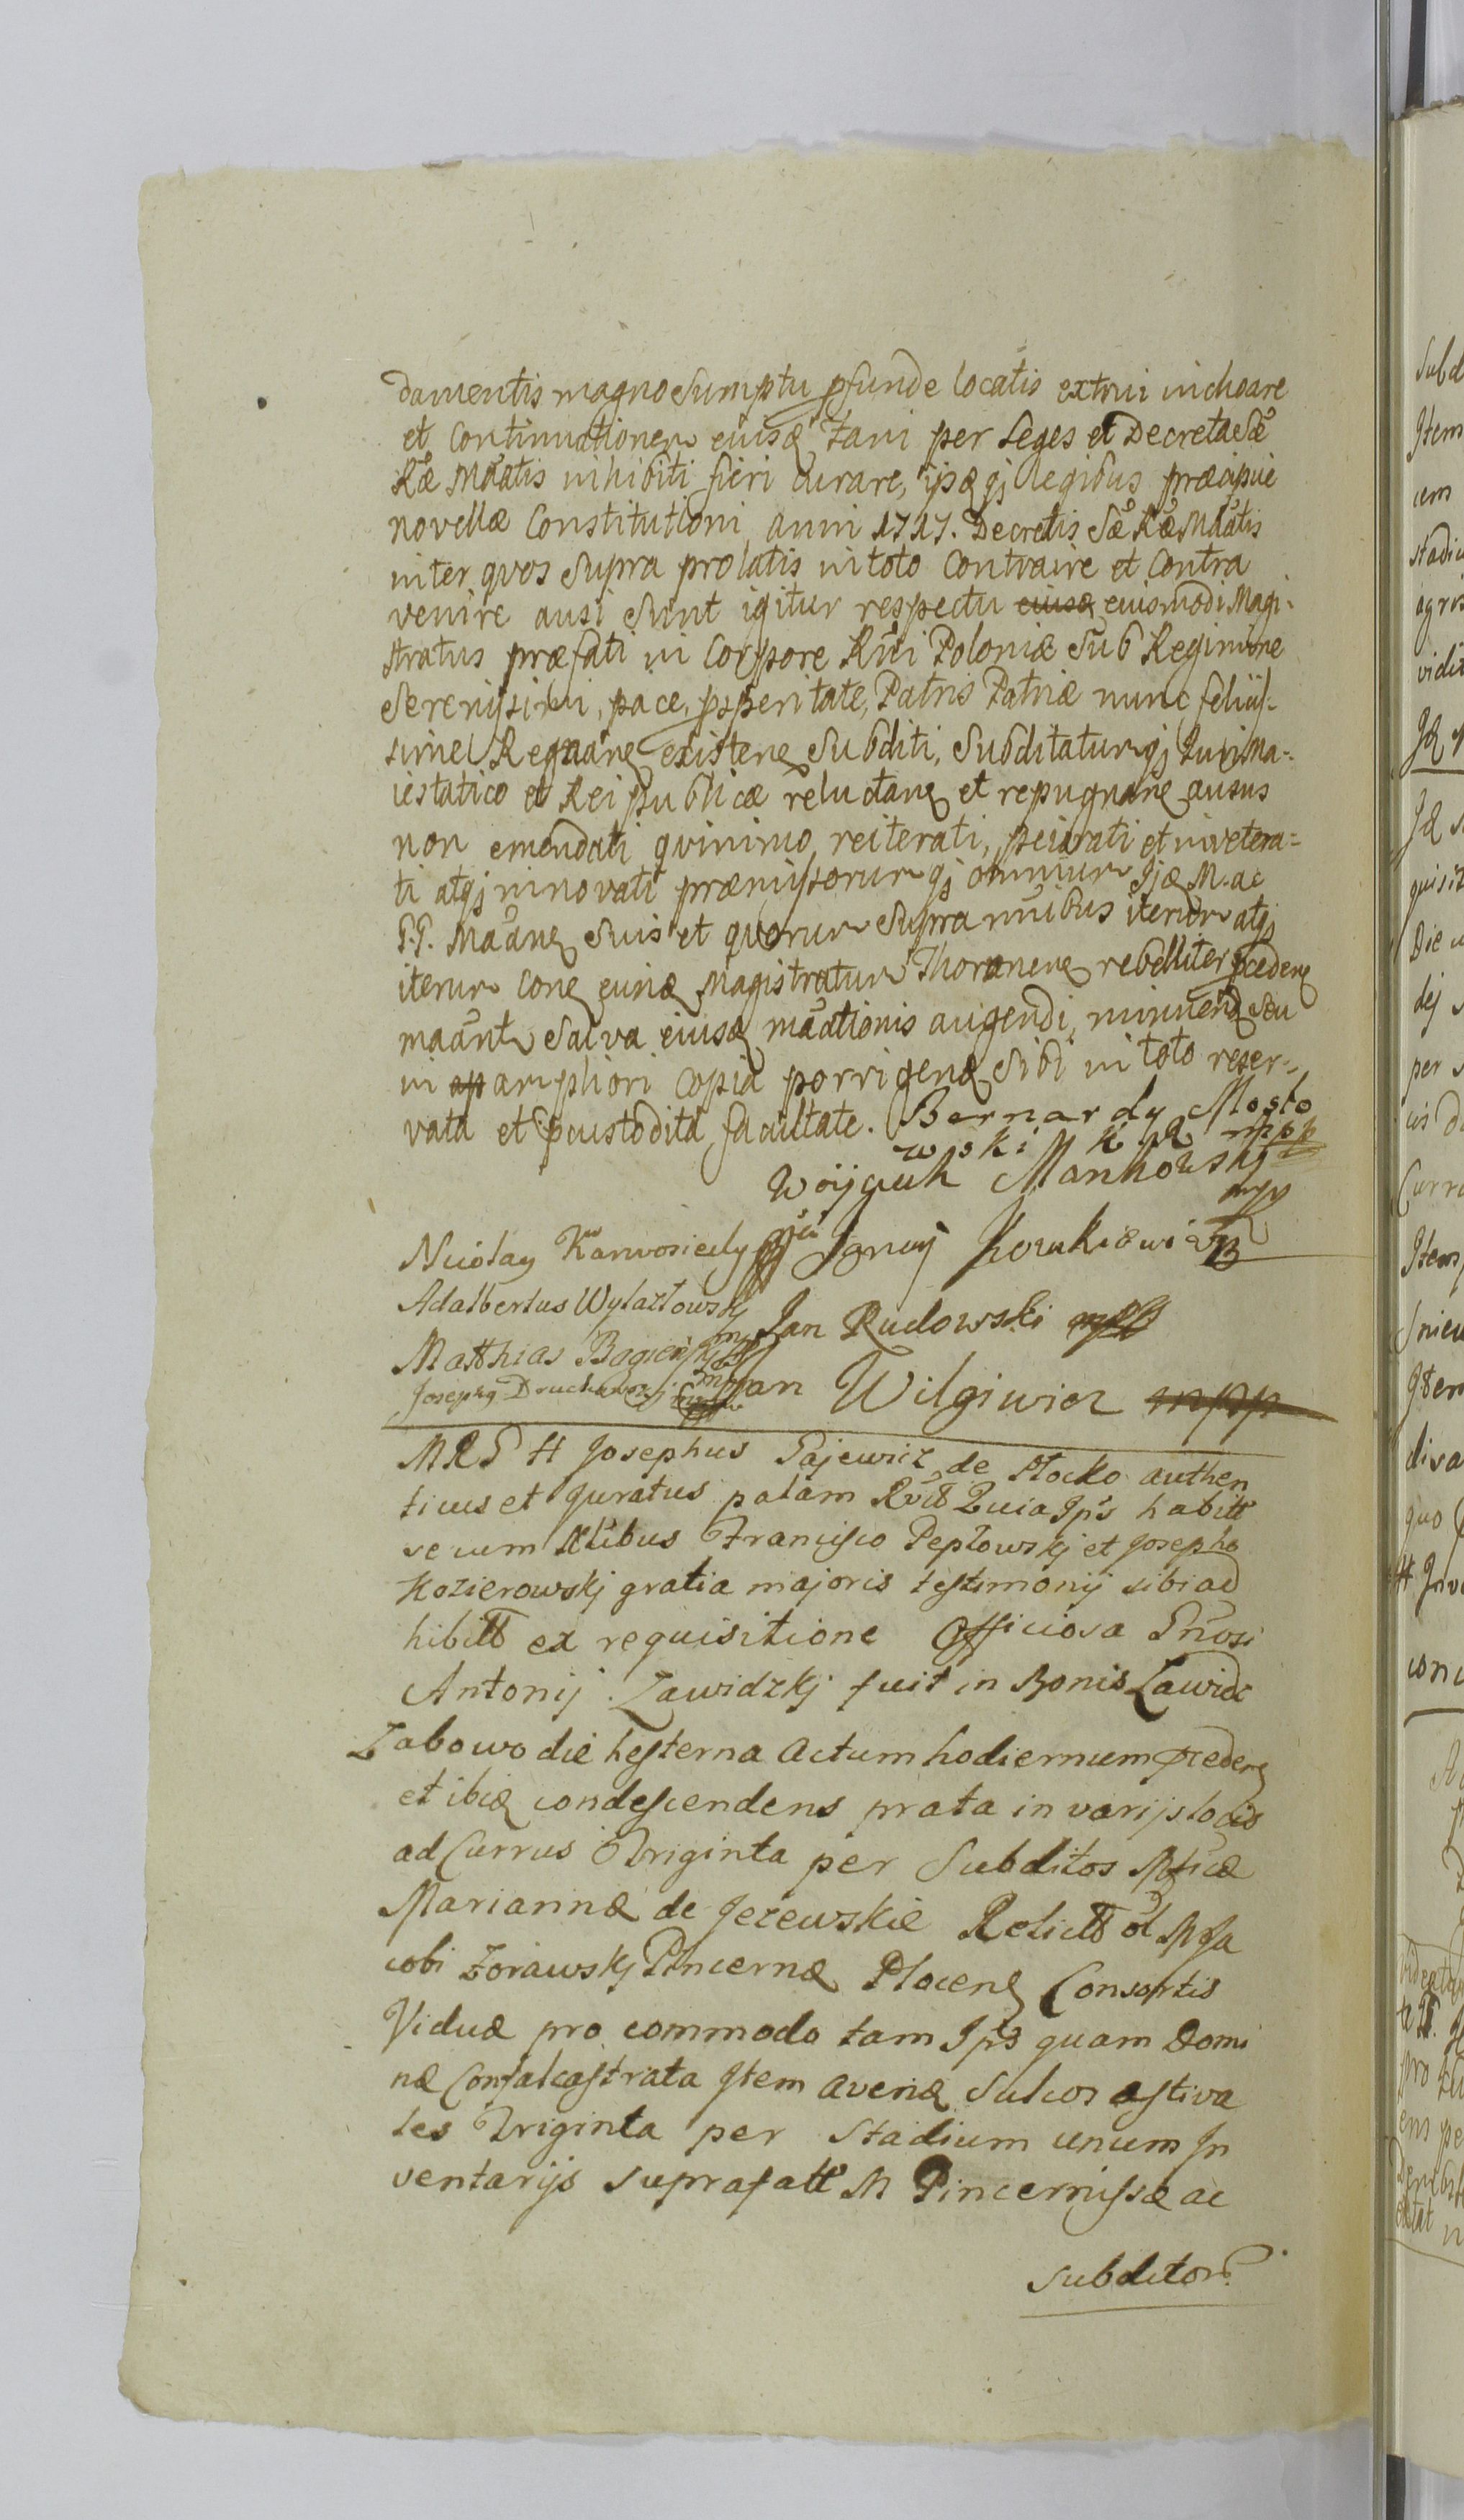 damentis magno Sumptu pfunde locatis extrui inchoare
et Continuationem eiusq Fani per Leges et Decreta Sæ
Ræ Mãatis inhibiti fieri curare, ijsq qj Legibus præcipue
novellæ Constitutioni anni 1717. Decretis Sæ Ræ Mãatis
inter qvos Supra prolatis in toto Contraire et Contra
venire ausi Sunt igitur respectu eiusq eiusmodi Magi-
stratus præfati in Corpore Rñi Poloniæ Sub Regimine
Serenissimi, pace, psperitate, Patris Patriæ nunc feliciss-
sime Regnanẹ existenẹ Subditi, Subditatumqj Juri Ma-
iestatico et Rei publicæ reluctanẹ et repugnanẹ ausus
non emendati qvinimo reiterati, peiorati et invetera-
ti atqj innovati præmissorum qj omnium Ijæ M. ac
G.G. Mãanẹ Suis et quorum Supra nũibus iterum atqj
iterum Conẹ eundq Magistratum Thorunenẹ rebelliter pcedenẹ
maãnt Salva eiusq mãationis augendi, minuendi seu
in ap ampliori Copia porrigenq Sibi in toto reser-
vata et pcustodita facultate. Bernardy Mosto
wski K R mpp
Woyciech Mankowsky mpp
Nicolay Karwosiecky mpp Jgnacy
Adalbertus Wylazłowsky mpp Jan Rudowski mpp
Matthias Bagieńsky mpp
Josephq Jan Wilgiwicz mpp
M R G H Josephus Gajewicz de Płocko authen
ticus et Juratus palam Rvit Quia Jps habitt
secum Nlibus Francisco Pepłowskj et Josepho
Kozierowskj gratia majoris testimonij sibi ad
hibitt ex requisitione Officiosa Gñosi
Antonij Zawidzkj fuit in Bonis Zawidz
Zabowo die hesterna Actum hodiernum pcedenẹ
et ibiq condescendens prata in varijs locis
ad Currus Triginta per Subditos Mficæ
Mariannæ de Jezewskie Relictt ol M Ja
cobi Zorawskj Pincernæ Plocenẹ Consortis
Viduæ pro commodo tam Jps quam Domi
næ Confalcastrata Jtem avenæ Sulcos æstiva
les Triginta per Stadium unum Jn
ventarijs suprafatt M Pincernissæ ac
Subditor.